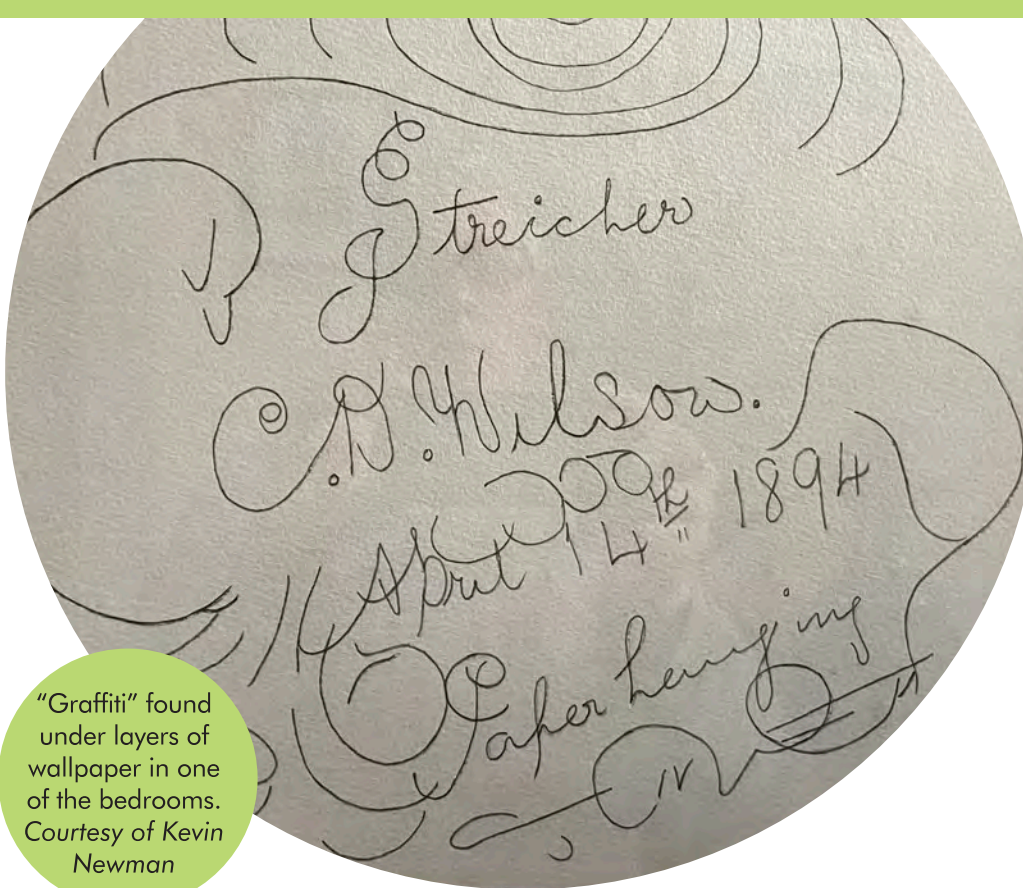 Streicher
C.D. Wilson.
April 14th 1894
Paper hanging
"Graffiti" found
under layers of
wallpaper in one
of the bedrooms.
Courtesy of Kevin
Newman